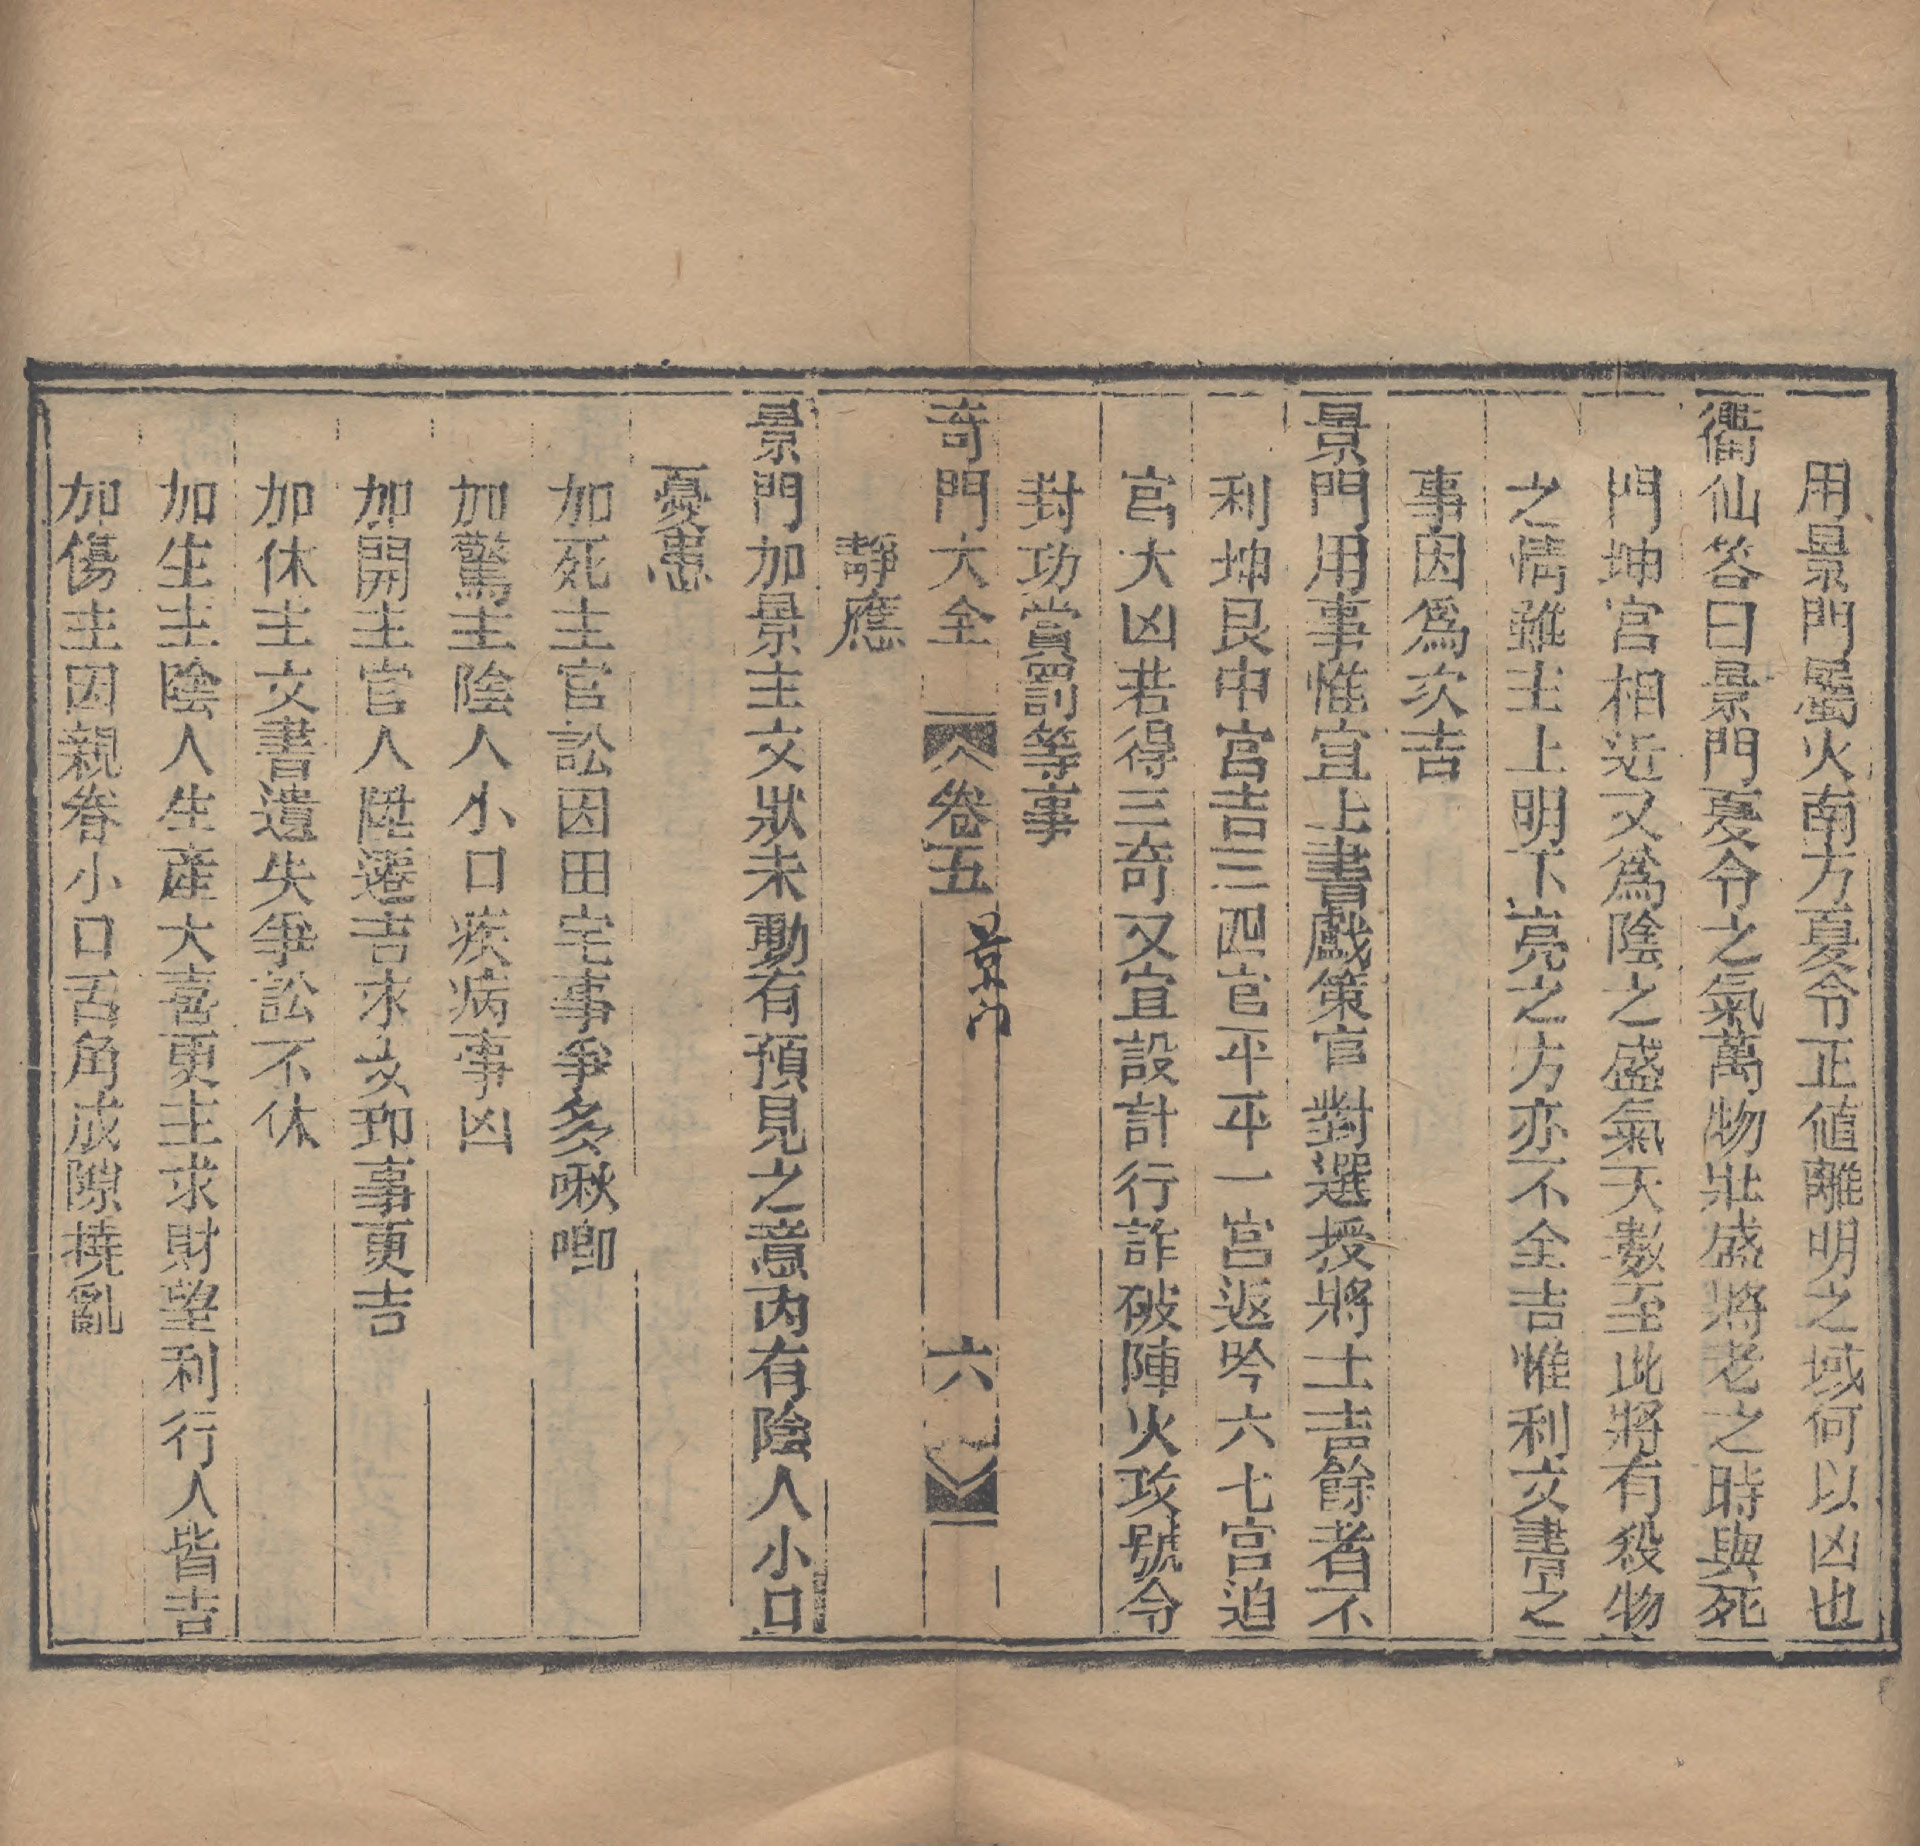 用景門屬火南方夏令正値離明之域何以凶也
衢仙答曰景門夏令之氣萬物壯盛將老之時與死
門坤宮相近又爲陰之盛氣天數至此將有殺物
之情雖主上明下亮之方亦不全吉惟利文書之
事因爲次吉
景門用事惟宜上書戲策官對選授將士吉餘者不
利坤艮中宮吉三四宮平平一宮返吟六七宮迫
宮大凶若得三奇又宜設計行詐破陣火攻號令
對功賞罰等事
奇門大全 卷五 景门 六
靜應
景門加景主文狀未動有預見之意内有陰人小口
憂患
加死主官訟因田宅事爭多啾唧
加驚主陰人小口疾病事凶
加開主官人陞遷吉求文印事更吉
加休主文書遺失爭訟不休
加生主陰人生產大喜更主求財望利行人皆吉
加傷主因親眷小口舌角成隙撓亂